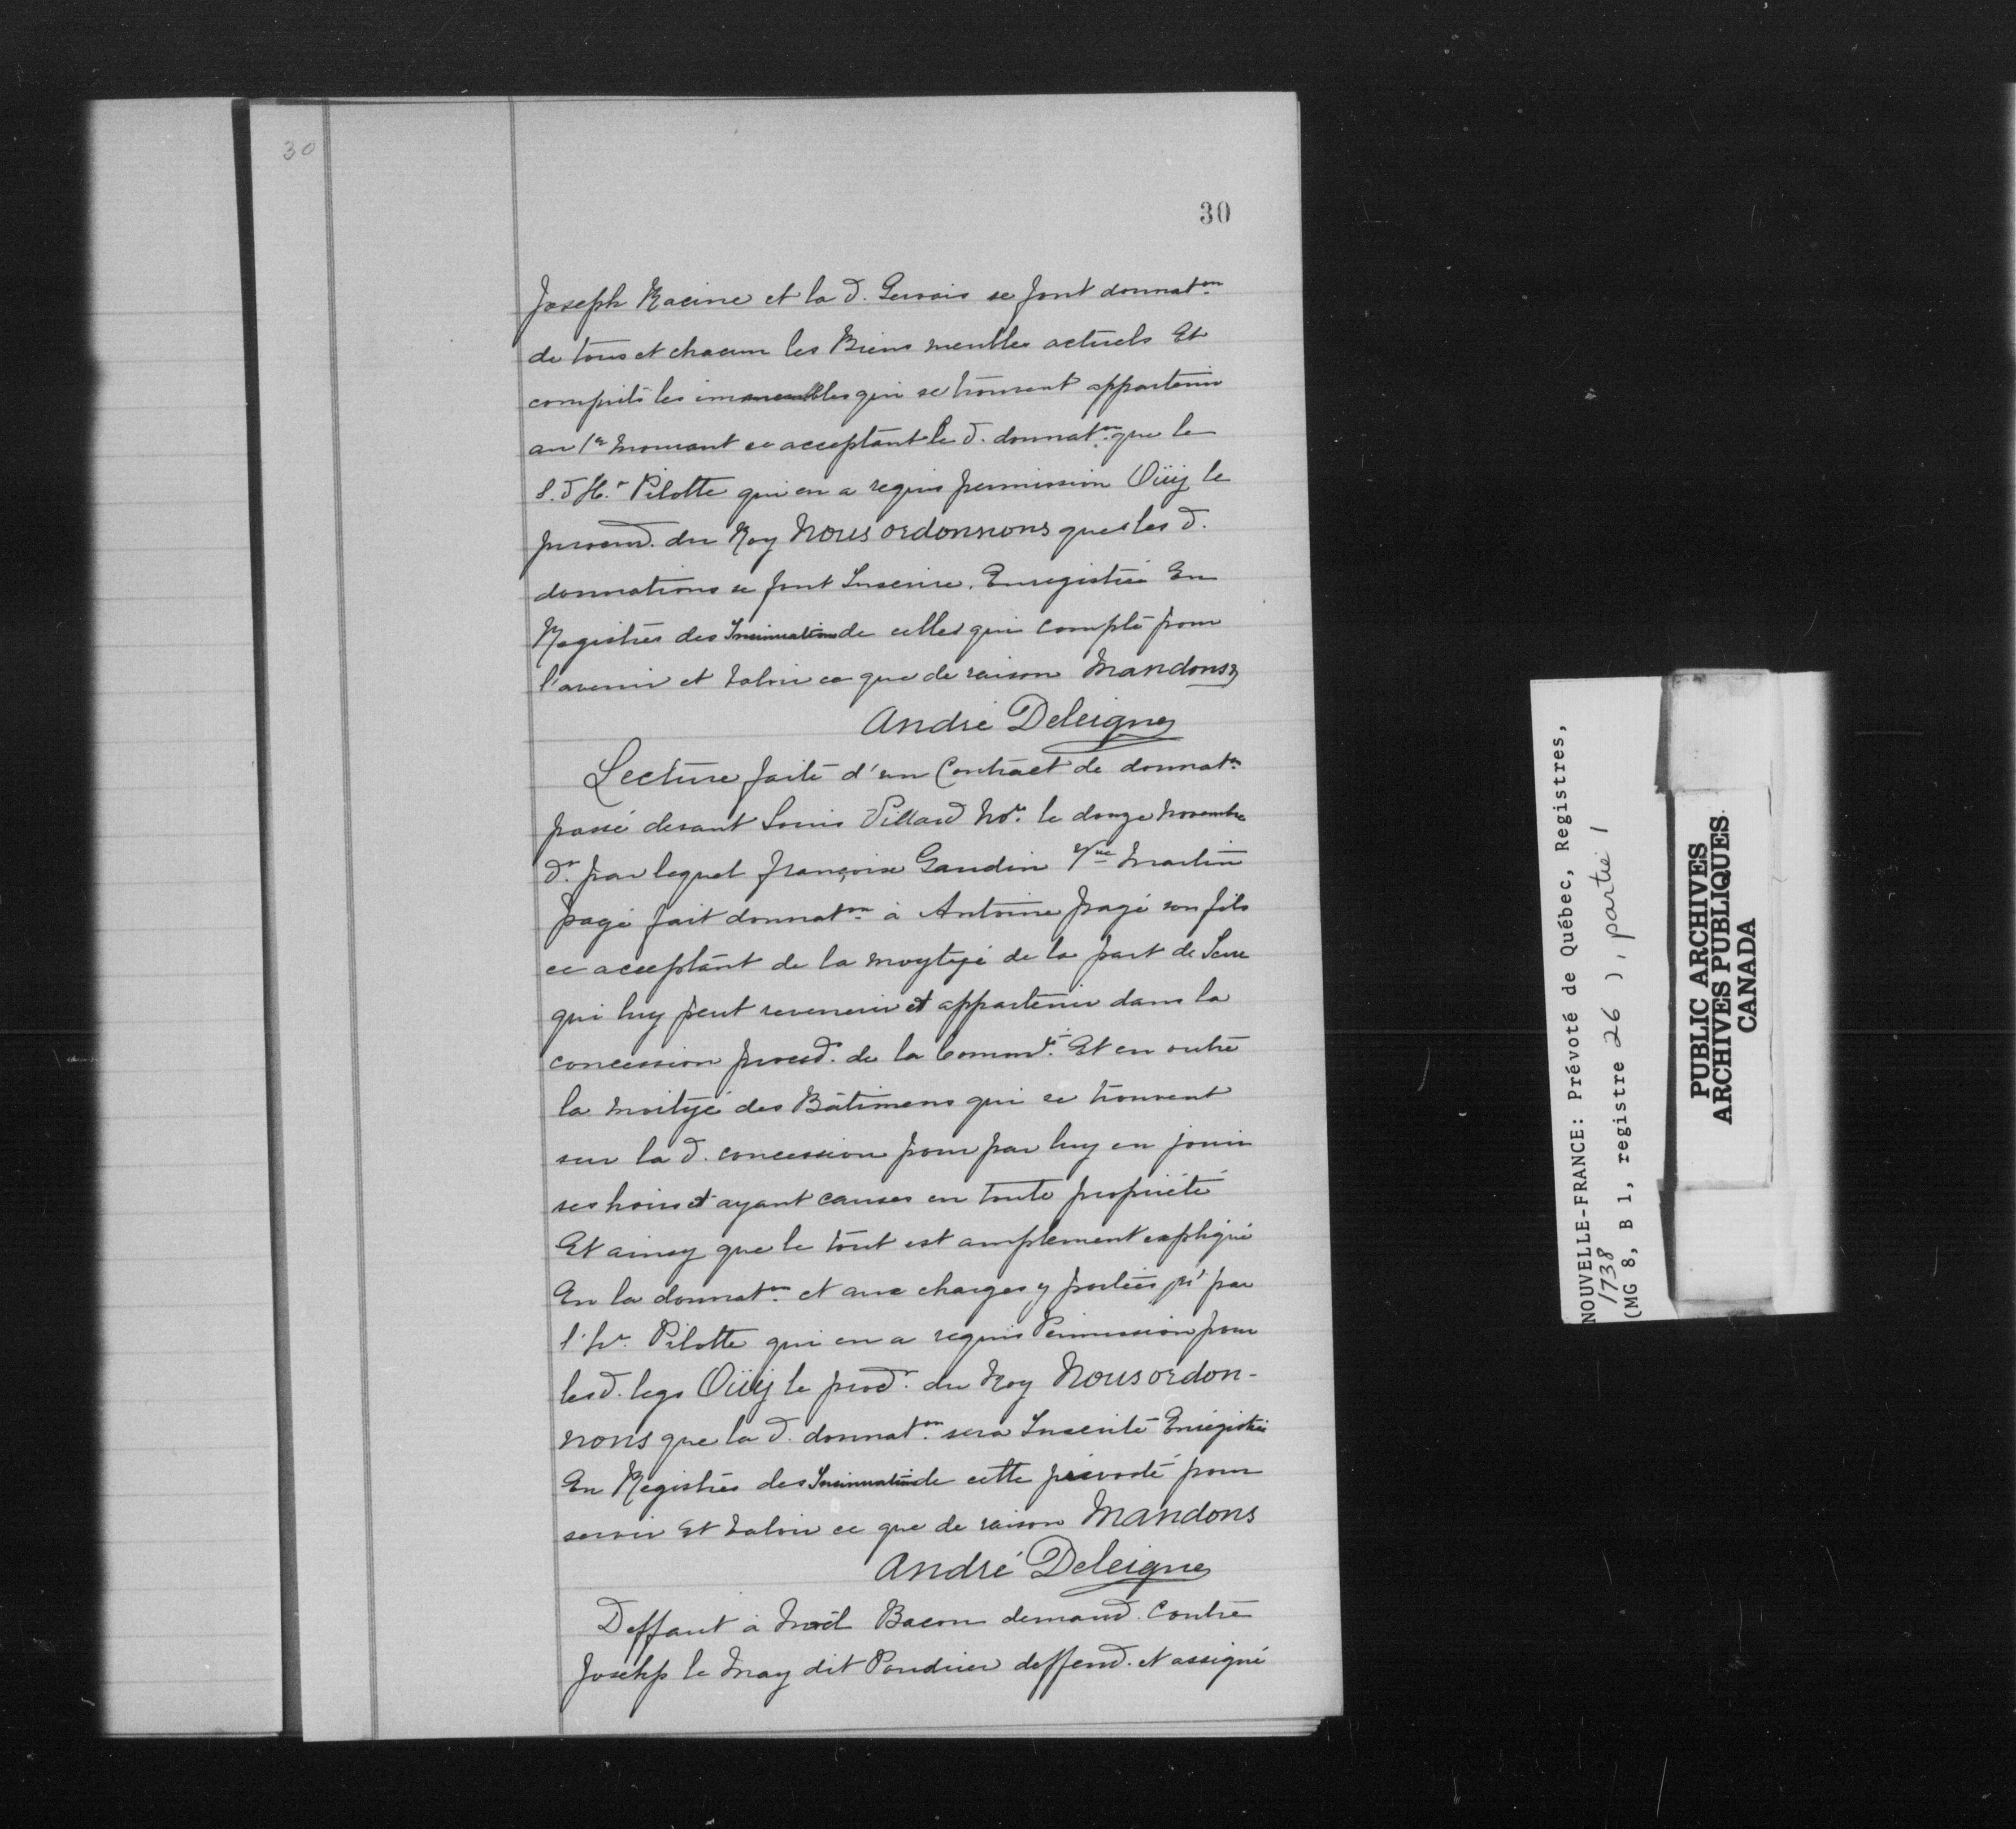 30
30
Joseph Racine et la d. Gervais se font donnat.on
de tous et chacun les Biens meubles actuels Et
compris les immeubles qui se trouvent appartenir
au 1er mourant ce acceptant le d. donnat.on que le
S. d H.r Pilotte qui en a requis permission Oüij le
procur. du Roy Nous ordonnons que les d.
donnations se font Inscrire. Enregistré En
Registres des Insinuations de celles qui compte pour
l'avenir et valoir ce que de raison Mandons
André Deleigne
Lecture faite d'un Contract de donnat.n
passé devant Louis Pillard No.re le douze novembre
d.r par lequel françoise Gaudin V.ve Martin
pagé fait donnat.on à Antoine pagé son fils
ce acceptant de la moytyé de la part de Terre
qui luy peut revenir et appartenir dans la
concession proced.r de la Comm.té Et en outre
la moityé des Bâtimens qui se trouvent
sur la d. concession pour par luy en jouir
ses hoirs et ayant causes en toute propriété
Et ainsy que le tout est amplement expliqué
En la donnat.on et aux charges y portées par
l'h.r Pilotte qui en a requis Permission pour
les d. legs Oüij le prod.r du Roy Nous ordon-
nons que la d. donnat.on sera Inscrite Enregistrée
En Registres des Insinuations de cette prévosté pour
servir Et valoir ce que de raison Mandons
André Deleigne
Deffaut à Noël Bacon demand. Contre
Josehp le May dit Poudrier deffend. et assigné
NOUVELLE-FRANCE: Prévoté de Québec, Registres,
1738
(MG 8, B 1, registre 26 ), partie 1
PUBLIC ARCHIVES
ARCHIVES PUBLIQUES
CANADA